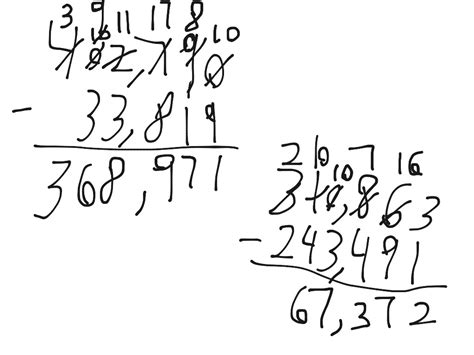 3 9 11 17 8
10 10
402,790
- 33,819
368,971
2 10 7 16
10
310,863
- 243,491
67,372